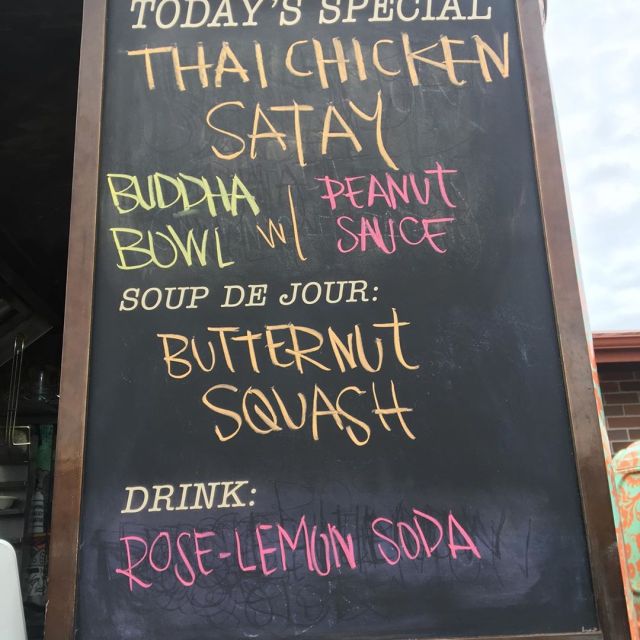 TODAY'S SPECIAL
THAI CHICKEN
SATAY
BUDDHA
BOWL w/ PEANUT
SAUCE
SOUP DE JOUR:
BUTTERNUT
SQUASH
DRINK:
ROSE-LEMON SODA